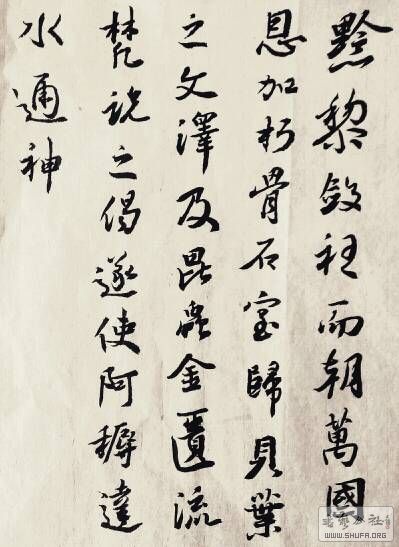 黔黎斂衽而朝萬國
恩加朽骨石室歸貝葉
之文澤及昆蟲金匱流
梵說之偈遂使阿耨達
水通神
WWW.SHUFA.ORG